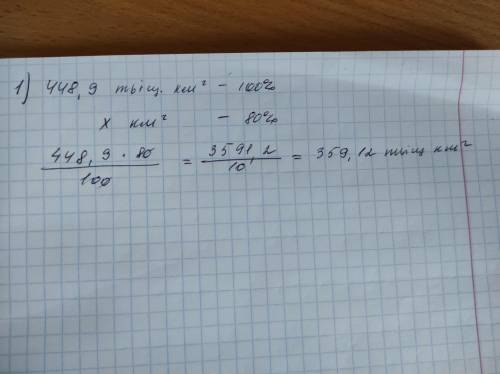 1) 448,9 тыщ. км² - 100%
х км² - 80%
448,9 · 80 / 100 = 3591,2 / 10 = 359,12 тыщ км²